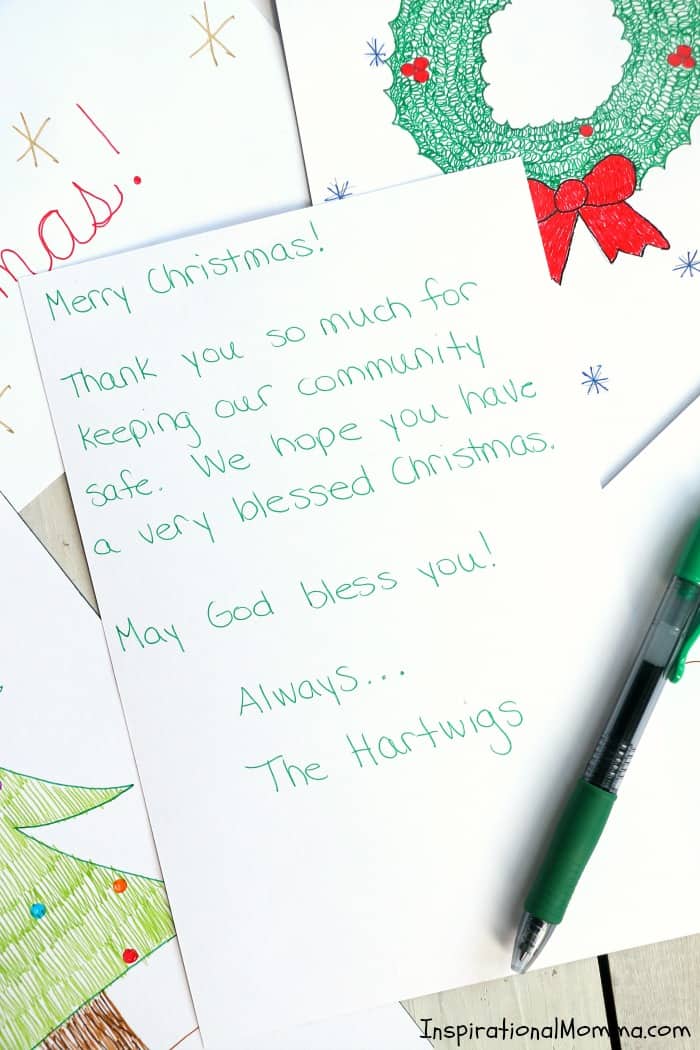 mas!
Merry Christmas!
Thank you so much for
keeping our community
safe. We hope you have
a very blessed Christmas.
May God bless you!
Always...
The Hartwigs
InspirationalMomma.com